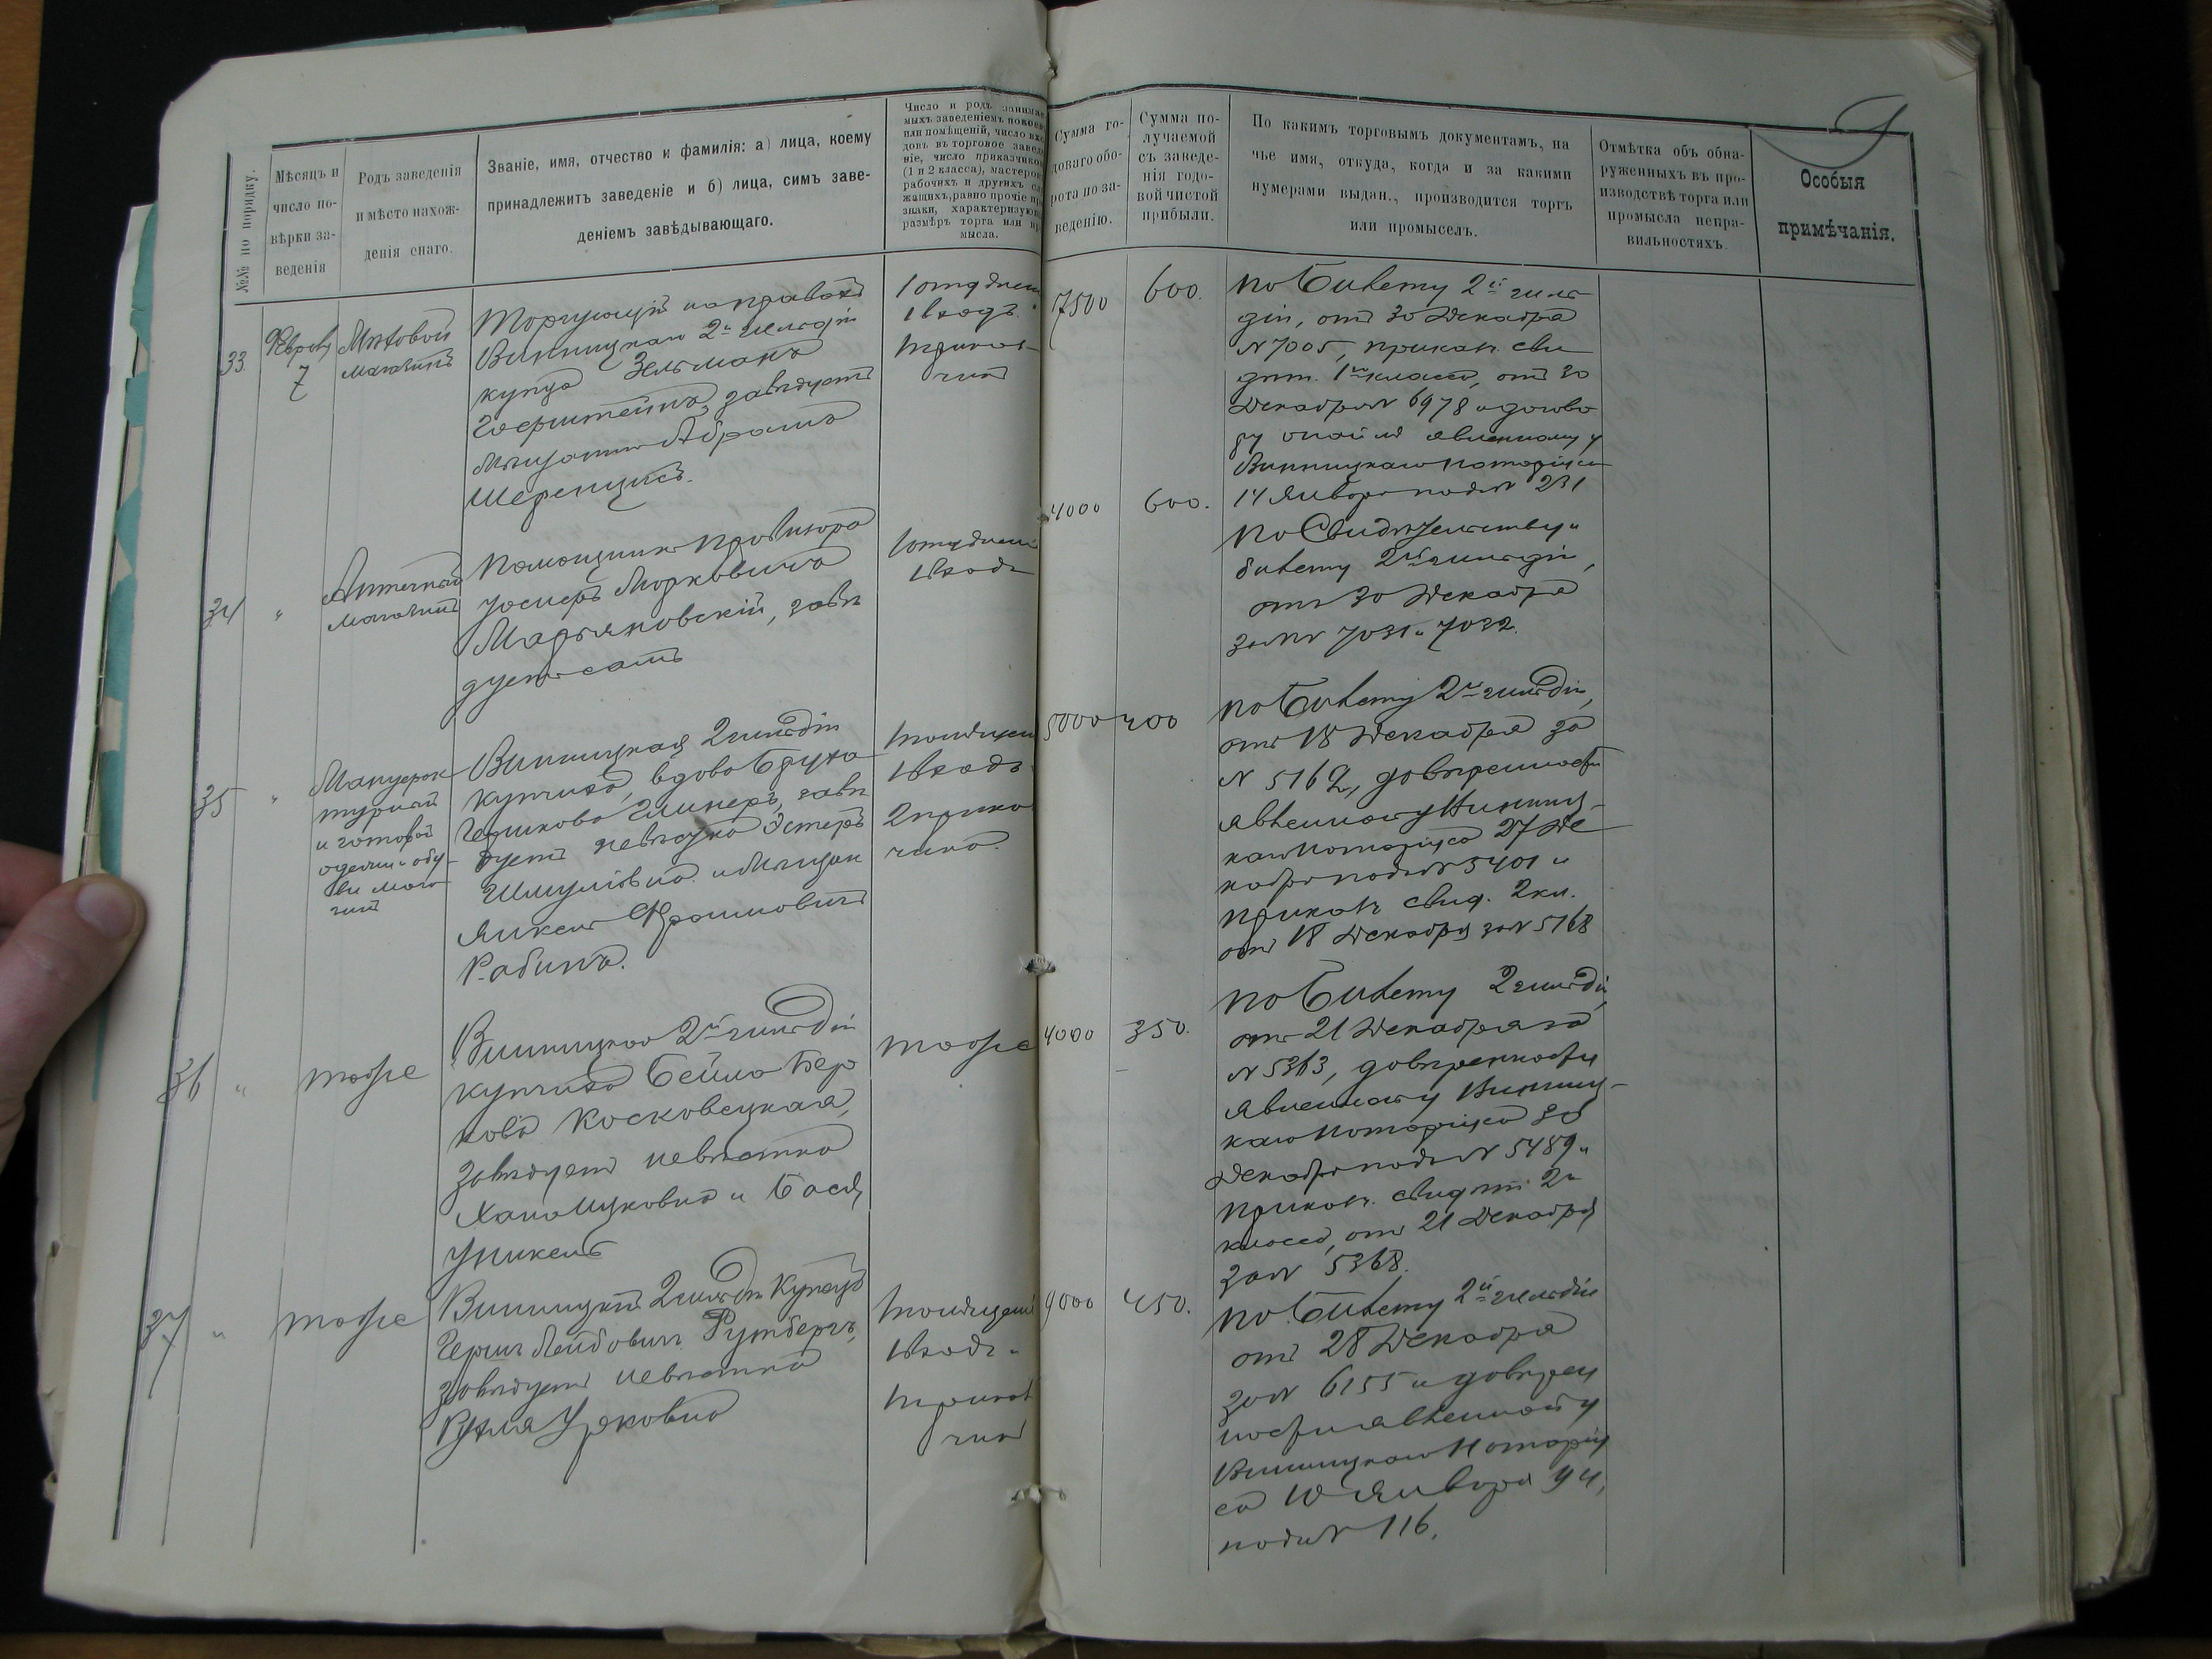 9
№№ по порядку.
Мѣсяцъ и
число по-
вѣрки за-
веденія
Родъ заведенія
и мѣсто нахож-
денія онаго.
Званіе, имя, отчество и фамилія: а) лица, коему
принадлежитъ заведеніе и б) лица, симъ заве-
деніемъ завѣдывающаго.
Число и родъ занимае
мыхъ заведеніемъ покоев
или помѣщеній, число вхо
довъ въ торговое заведе
ніе, число приказчиков
(1 и 2 класса), мастеров
рабочихъ и другихъ слу
жащихъ, равно прочіе при
знаки, характеризующ
размѣръ торга или про
мысла.
Сумма го-
доваго обо-
рота по за-
веденію.
Сумма по-
лучаемой
съ заведе-
нія годо-
вой чистой
прибыли.
По какимъ торговымъ документамъ, на
чье имя, откуда, когда и за какими
нумерами выдан., производится торгъ
или промыселъ.
Отмѣтка объ обна-
руженныхъ въ про-
изводствѣ торга или
промысла непра-
вильностяхъ.
Особыя
примѣчанія.
33
Февраля
7
Мѣховой
магазинъ
Торгующій на правахъ
Винницкаго 2й гильдіи
купца Зельмана
завѣдуетъ
мѣщанинъ Абрамъ
Шеренцисъ.
1 отдѣлен
1 входъ
1 приказ
чикъ
7500
600.
По билету 2й гиль
діи, отъ 30 Декабря
№ 7005, приказ. сви
дѣт. 1го класса, отъ 30
Декабря № 6978 и догово
ру явленному у
Винницкаго Нотаріуса
14 Января под № 231
34
"
Аптечный
магазинъ
Помощникъ Провизора
Іосифъ Морковичъ
Марьяновскій, завѣ
дуетъ самъ
1 отдѣлені
1 входъ
4000
600.
По Свидѣтельству и
билету 2й гильдіи,
отъ 30 Декабря
за №№ 7031 и 7032.
35
"
Мануфак
турный
и готовой
одежи и обу-
ви мага
зинъ
Винницкая 2 гильдіи
купчиха, вдова Бруха
Герикова Глинеръ, завѣ
дуетъ невѣстка Эстеръ
Шмулівна и Мѣщан
Янкель Фроимовичъ
Рабинъ.
1 помѣщен
1 входъ
2 прика
чика.
5000
400
По билету 2й гильдіи,
отъ 18 Декабря за
№ 5162, довѣренности
явленной у Винниц-
каго Нотаріуса 27 Де
кабря подъ № 5401 и
приказ. свид. 2 кл.
отъ 18 Декабря за № 5168
36
"
тоже
Винницкая 2й гильдіи
купчиха Бейла Бер
кова Косковецкая,
завѣдуетъ невѣстка
Хана Ицковна и Бася
Уникель
тоже
4000
350.
По билету 2 гильдіи,
отъ 21 Декабря за
№ 5363, довѣренности
явленной у Винниц-
каго Нотаріуса 30
Декабря подъ № 5489 и
приказ. свидѣт. 2го
класса, отъ 21 Декабря
за № 5368.
37
"
тоже
Винницкій 2 гильдіи Купецъ
Гершъ Лейбовичъ Рутбергъ,
завѣдуетъ невѣстка
Рухля Урковна
1 помѣщені
1 входъ.
1 приказ
чикъ
9000
450.
По билету 2й гильдіи
отъ 28 Декабря
за № 6155 и довѣрен
ности явленной у
Винницкаго Нотаріу
са 10 Января
подъ № 116.